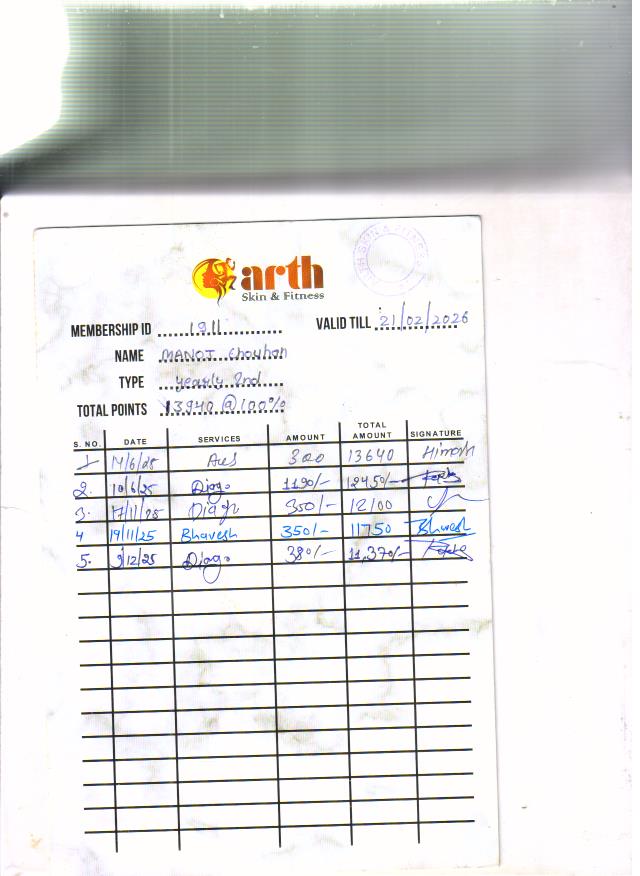 arth
Skin & Fitness
MEMBERSHIP ID 1911 VALID TILL 21/02/2026
NAME MANOJ Chouhan
TYPE yearly 2nd
TOTAL POINTS 13940 @100%
S. NO. DATE SERVICES AMOUNT TOTAL AMOUNT SIGNATURE
1 14/6/25 300 13640
2. 10/6/25 Diago 1190/- 12450/-
3. 17/11/25 350/- 12100
4 19/11/25 Bhavesh 350/- 11750 Bhavesh
5. 9/12/25 Diago 380/- 11,370/-